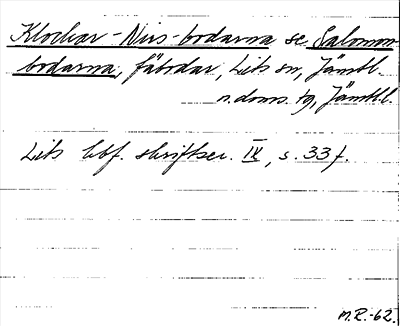 Klockar-Nirs-bodarna se Salomon-
bodarna, fäbodar, Lits sn, Jämtl.
n. doms. tg, Jämtl.
Lits hbf. skriftser. IX, s. 33 f.
M.R.-62.